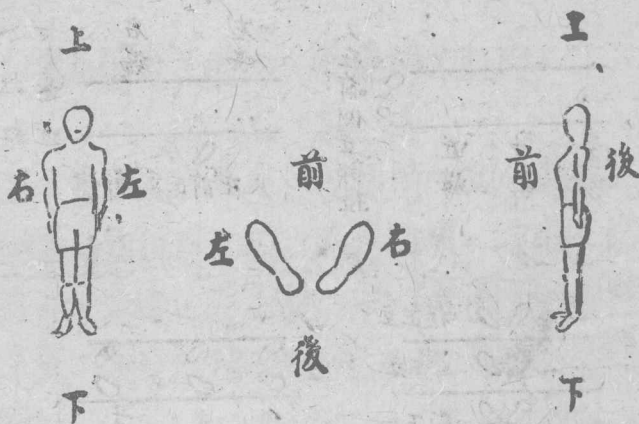 上
右 左
下
前
左 右
後
上
前 後
下